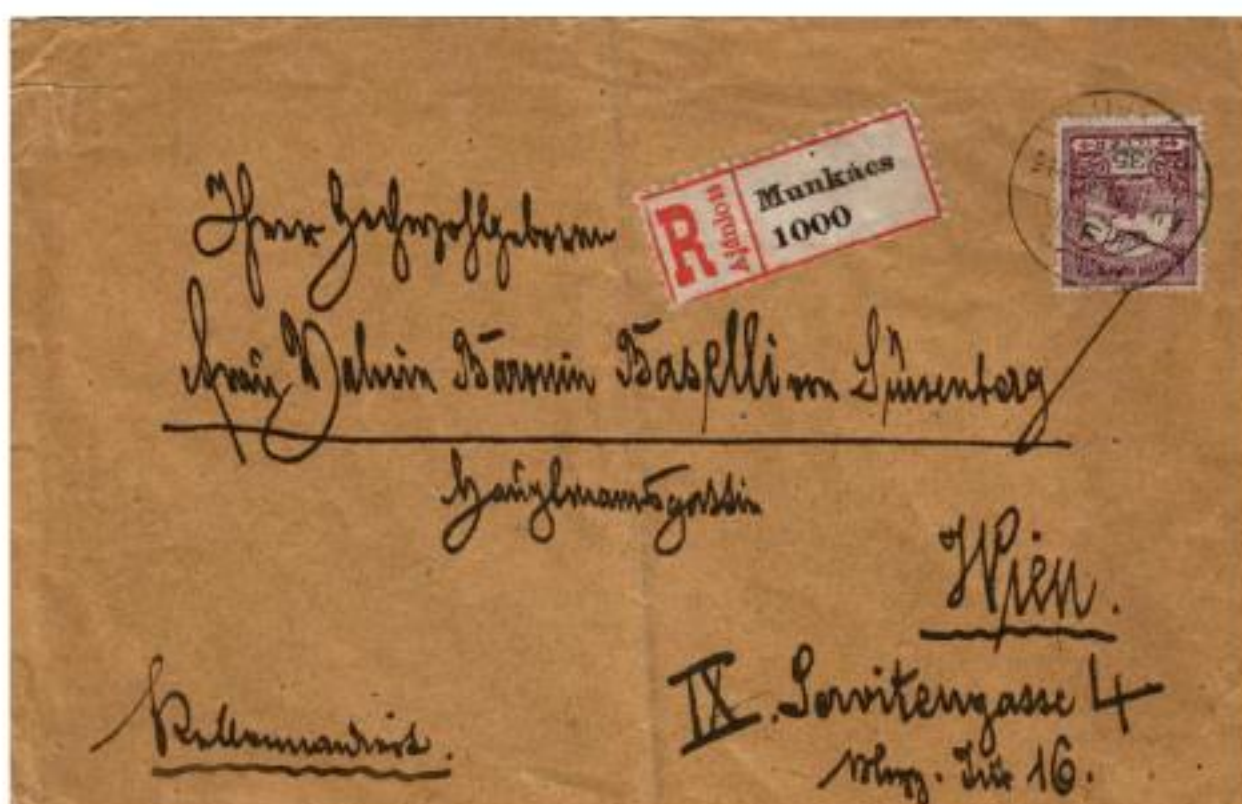 R Ajánlott Munkács
1000
35
Ihrer Hochwohlgeboren
Frau Baronin Baselli von Süssenberg
Hauptmannsgattin
Wien.
IX. Servitengasse 4
Tür 16.
Rekommandiert.